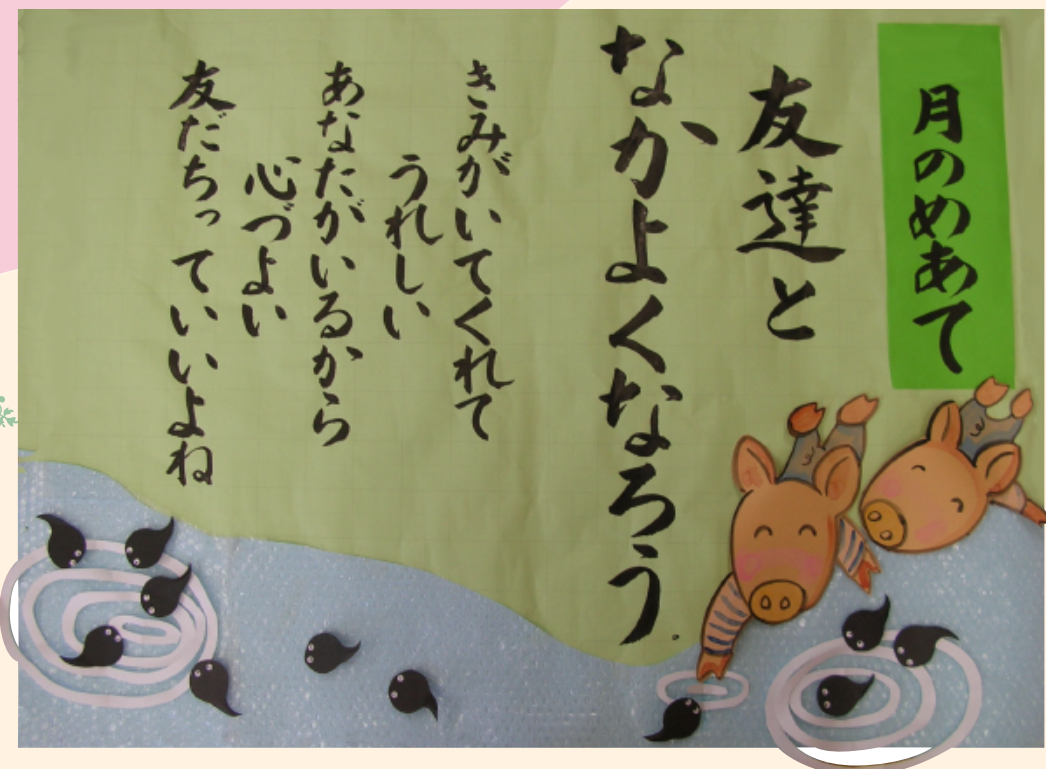 月のめあて
友達と
なかよくなろう.
きみがいてくれて
うれしい
あなたがいるから
心づよい
友だちっていいよね